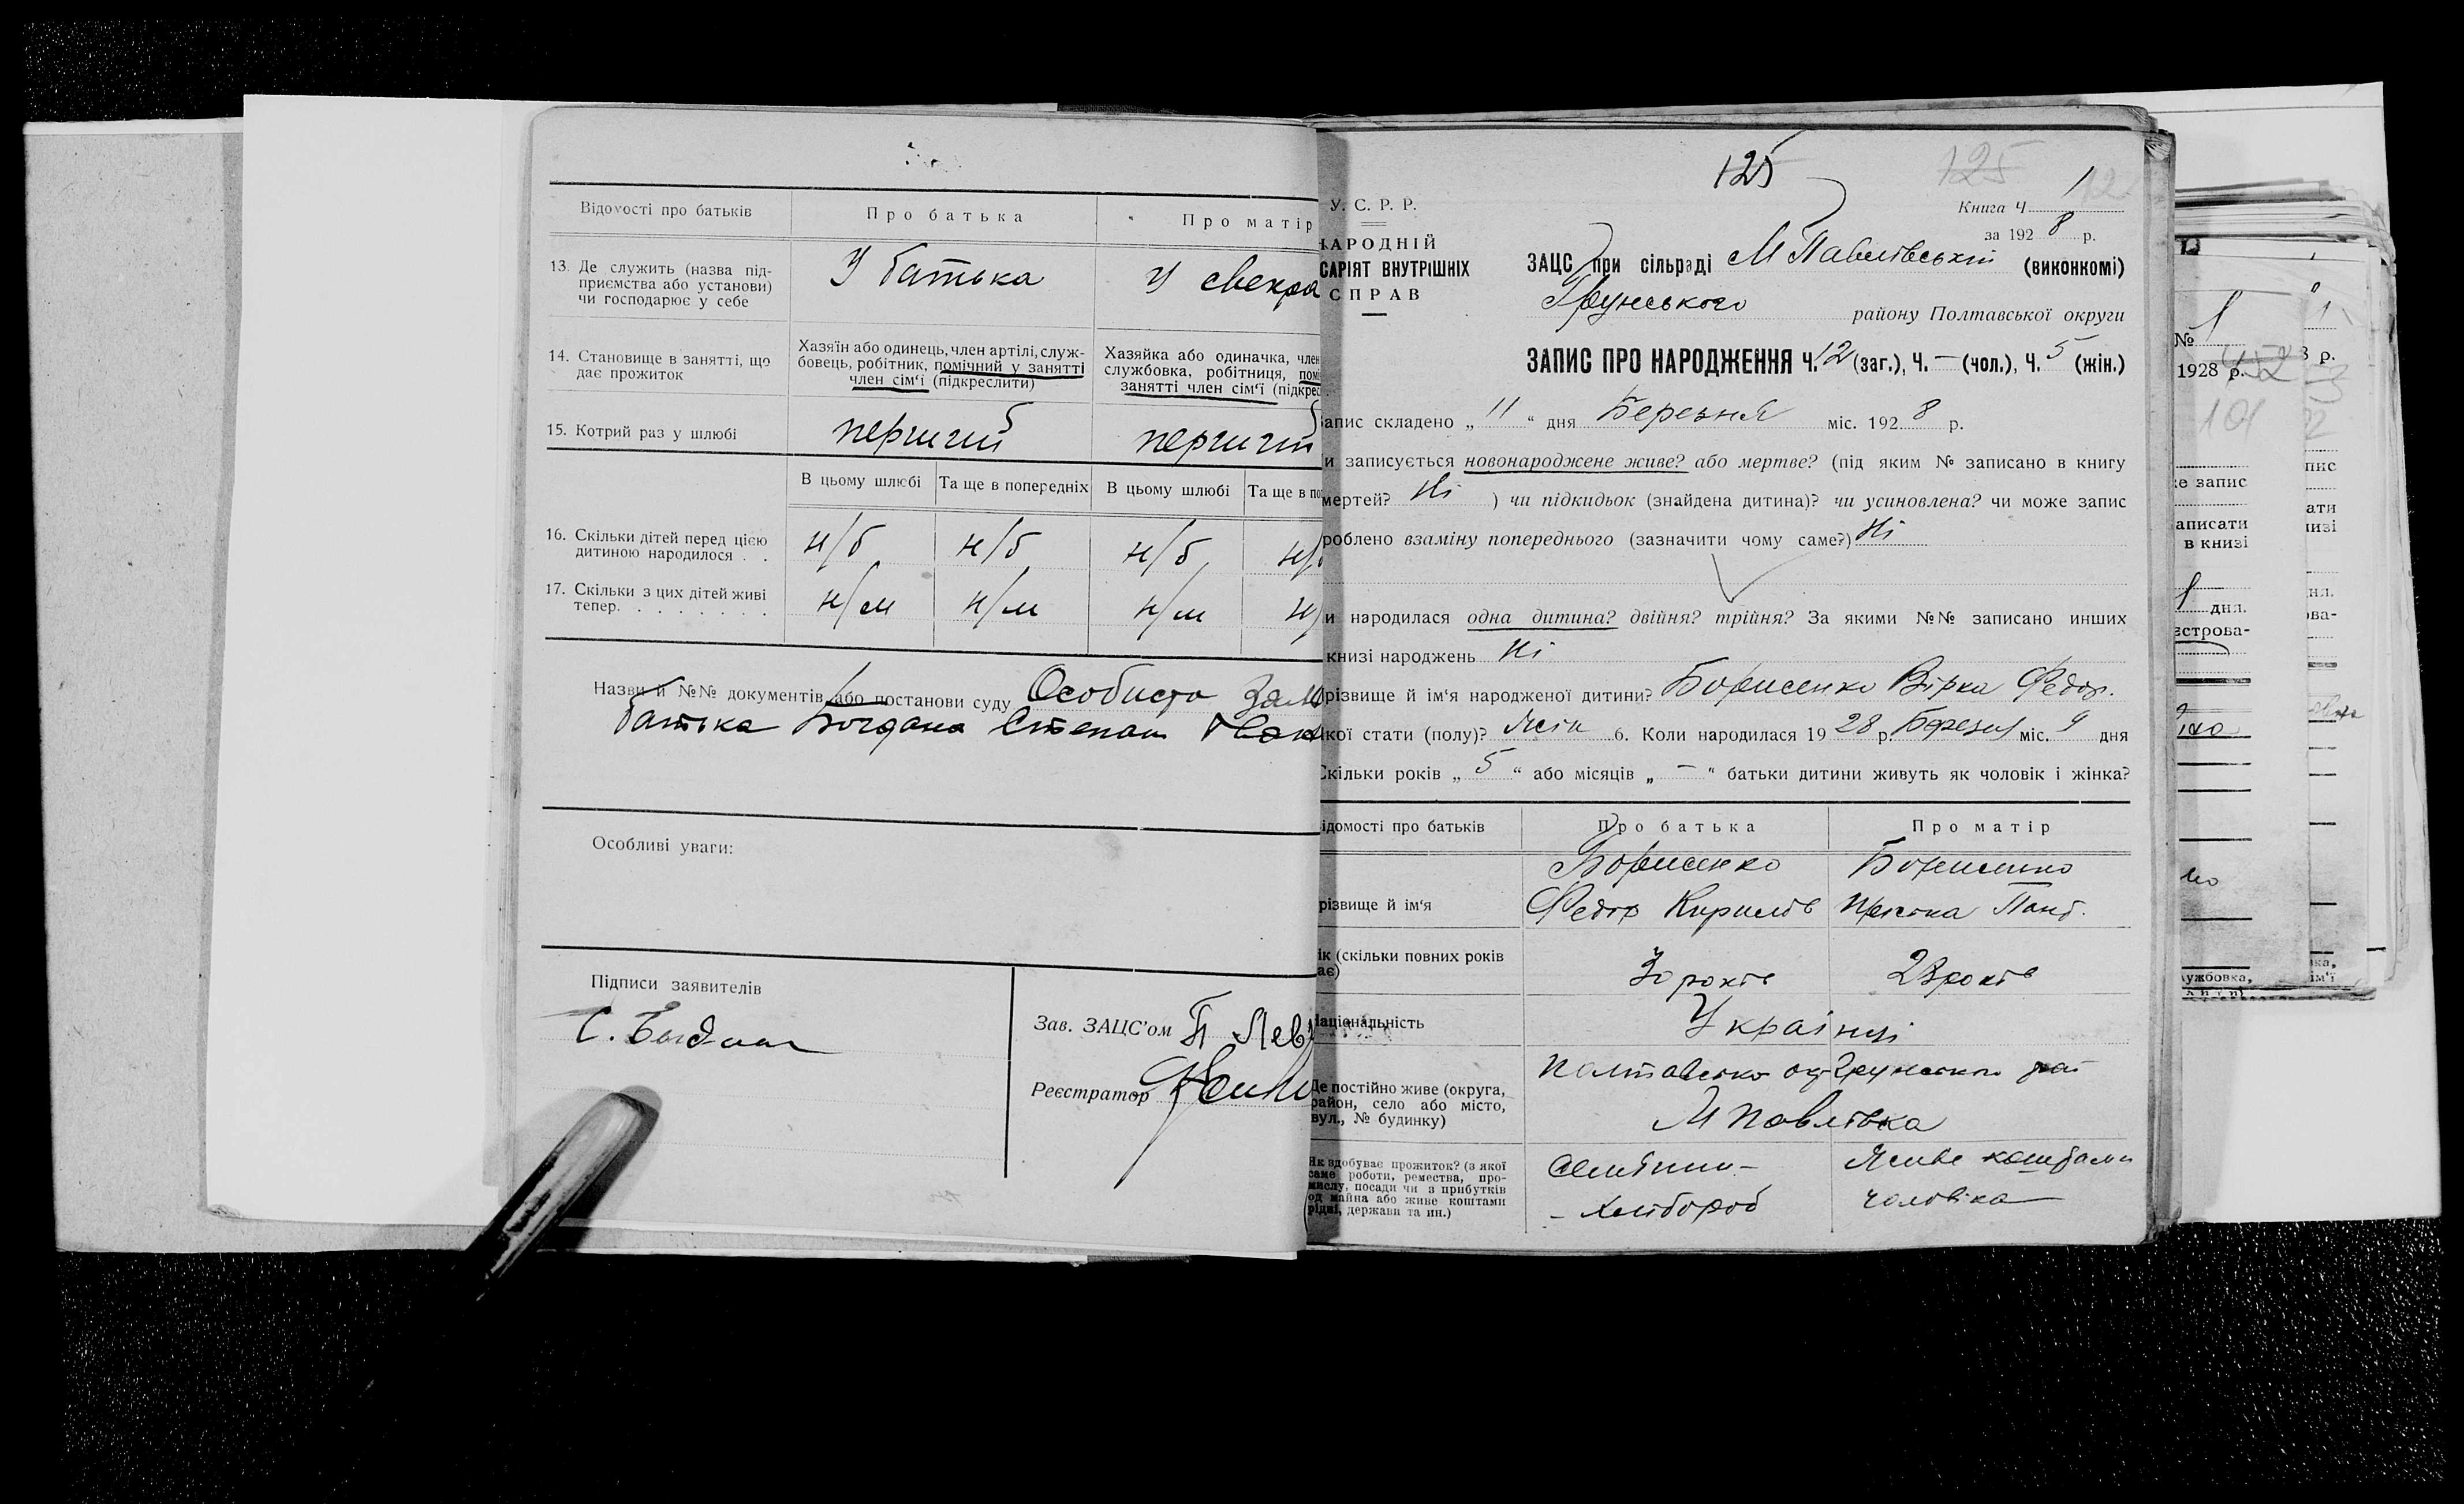 Відомості про батьків
Про батька
Про матір
13. Де служить (назва під-
приємства або установи)
чи господарює у себе
У батька
У свекра
14. Становище в занятті, що
дає прожиток
Хазяїн або одинець, член артілі, служ-
бовець, робітник, помічний у занятті
член сім'ї (підкреслити)
Хазяйка або одиначка, член
службовка, робітниця, пом
занятті член сім'ї (підкрес
15. Котрий раз у шлюбі
перший
перший
В цьому шлюбі
Та ще в попередніх
В цьому шлюбі
Та ще в по
16. Скільки дітей перед цією
дитиною народилося . .
н/б
н/б
н/б
н/
17. Скільки з цих дітей живі
тепер. . . . . . . .
н/м
н/м
н/м
н/
Назви й №№ документів або постанови суду Особисто
батька Богдана Степан
Особливі уваги:
Підписи заявителів
С. Богдан
Зав. ЗАЦС'ом П Лев
Реєстратор
125
125
У. С. Р. Р.
НАРОДНІЙ
САРІЯТ ВНУТРІШНІХ
СПРАВ
Книга Ч. 1
за 1928 р.
ЗАЦС при сільраді М Павлівській (виконкомі)
Грунського району Полтавської округи
ЗАПИС ПРО НАРОДЖЕННЯ Ч. 12 (заг.), Ч. — (чол.), Ч. 5 (жін.)
апис складено „ 11 “ дня Березня міс. 192 8 р.
и записується новонароджене живе? або мертве? (під яким № записано в книгу
мертей? Ні ) чи підкидьок (знайдена дитина)? чи усиновлена? чи може запис
роблено взаміну попереднього (зазначити чому саме?) Ні
и народилася одна дитина? двійня? трійня? За якими №№ записано инших
книзі народжень Ні
різвище й ім'я народженої дитини? Борисенко Вірка Федор.
кої стати (полу)? Жін 6. Коли народилася 19 28 р. Березня міс. 9 дня
кільки років „ 5 “ або місяців „ — “ батьки дитини живуть як чоловік і жінка?
ідомості про батьків
Про батька
Про матір
різвище й ім'я
Борисенко
Федор Кирилов
Борисенко
ік (скільки повних років
ає)
30 років
23 років
Національність
Українці
Де постійно живе (округа,
район, село або місто,
вул., № будинку)
Полтавсько ок Грунського рай
М Павлівка
Як здобуває прожиток? (з якої
саме роботи, ремества, про-
мислу, посади чи з прибутків
од майна або живе коштами
рідні, держави та ин.)
хлібороб
Живе коштами
чоловіка
№ 1
1928 р.
3 р.
101
пис
е запис
ати
аписати
низі
в книзі
дня.
ва-
єстрова-
ужбовка,
ім'ї